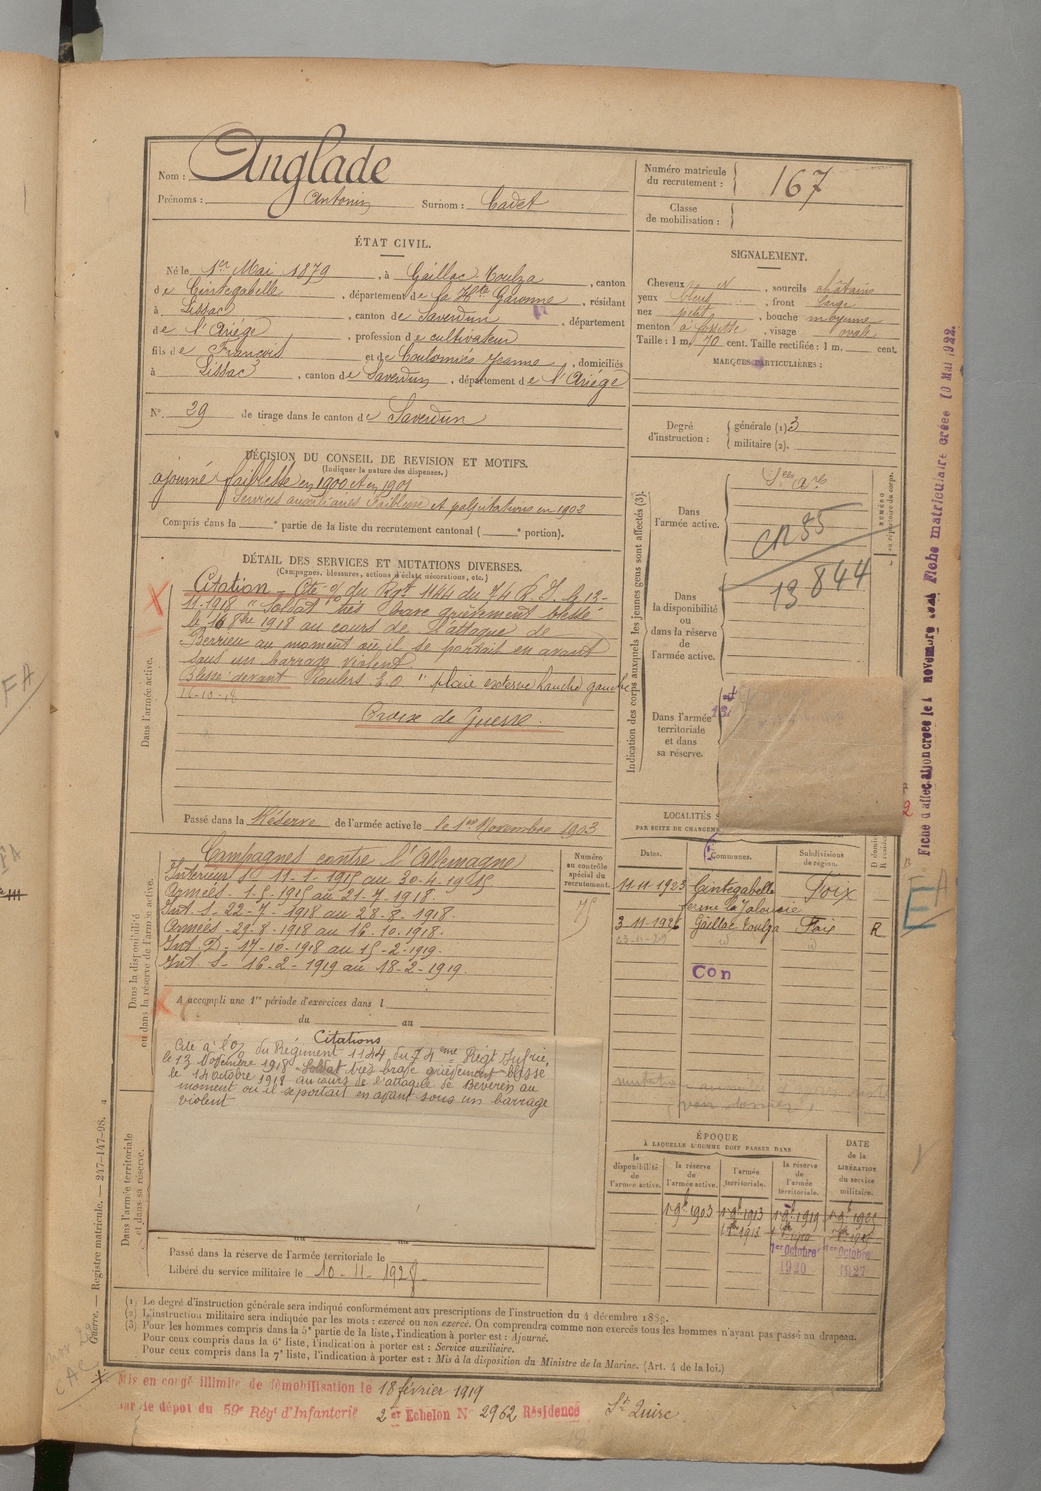 Nom : Anglade
Prénoms : Antonin Surnom : Cadet
Numéro matricule du recrutement : 167
Classe de mobilisation :
ÉTAT CIVIL.
Né le 1er Mai 1879, à Gaillac Toulza, canton
de Cintegabelle, département de la Hte Garonne, résidant
à Lissac, canton de Saverdun, département
de l'Ariège, profession de cultivateur
fils de François et de Coulomiès Jeanne, domiciliés
à Lissac, canton de Saverdun, département de l'Ariège
N° 29 de tirage dans le canton de Saverdun
SIGNALEMENT.
Cheveux N, sourcils châtains
yeux bleus, front large
nez petit, bouche moyenne
menton à fossette, visage ovale
Taille : 1 m. 70 cent. Taille rectifiée : 1 m. cent.
MARQUES PARTICULIÈRES :
Degré d'instruction : générale (1) 3
militaire (2).
DÉCISION DU CONSEIL DE REVISION ET MOTIFS.
(Indiquer la nature des dispenses.)
ajourné faiblesse en 1900 et en 1901
Services auxiliaires Faiblesse et palpitations en 1902
Compris dans la e partie de la liste du recrutement cantonal ( e portion).
DÉTAIL DES SERVICES ET MUTATIONS DIVERSES.
(Campagnes, blessures, actions d'éclat, décorations, etc.)
Dans l'armée active.
Citation Cité o/ du Rgt 1144 du 74 R.I. le 13-
11-1918 "Soldat très brave grièvement blessé
le 16 8bre 1918 au cours de l'attaque de
Berrieu au moment où il se portait en avant
sous un barrage violent
Blessé devant Roulers E.O "plaie externe hanche gauche
16-10-18
Croix de Guerre.
Passé dans la Réserve de l'armée active le 1er Novembre 1903
Indication des corps auxquels les jeunes gens sont affectés (3).
Dans l'armée active.
CN 35
NUMÉRO au répertoire du corps.
Dans la disponibilité ou dans la réserve de l'armée active.
13844
Dans l'armée territoriale et dans sa réserve.
Dans la disponibilité ou dans la réserve de l'armée active.
Campagnes contre l'Allemagne
Intérieur S. 11-1-1915 au 30-4-1915
Armées-1-5-1915 au 21-7-1918.
Int. S-22-7-1918 au 28-8-1918.
Armées-29-8-1918 au 16-10-1918.
Int. D-17-10-1918 au 15-2-1919.
Int. S-16-2-1919 au 18-2-1919.
A accompli une 1re période d'exercices dans l
du au
Numéro au contrôle spécial du recrutement.
LOCALITÉS S
PAR SUITE DE CHANGEME
Dates. Communes. Subdivisions de région.
11-11-1923 Cintegabelle Foix
ferme la Jalousie
3-11-1926 Gaillac Toulza Foix R
23-11-29
Con
(voir dossier)
Dans l'armée territoriale et dans sa réserve.
Citations
Cité à l'o/ du Régiment 1144 du 74eme Régt Infrie,
le 13 Novembre 1918-Soldat très brave grièvement blessé
le 14 Octobre 1918 au cours de l'attaque de Beveren au
moment où il se portait en avant sous un barrage
violent
Passé dans la réserve de l'armée territoriale le
Libéré du service militaire le 10-11-1928.
ÉPOQUE
À LAQUELLE L'HOMME DOIT PASSER DANS
la disponibilité de l'armée active.
la réserve de l'armée active.
l'armée territoriale.
la réserve de l'armée territoriale.
DATE de la LIBÉRATION du service militaire.
1 9b 1903 1 9b 1913 1 9b 1919 1 9b 1925
1er Octobre 1920 1er Octobre 1927
(1) Le degré d'instruction générale sera indiqué conformément aux prescriptions de l'instruction du 4 décembre 1889.
(2) L'instruction militaire sera indiquée par les mots : exercé ou non exercé. On comprendra comme non exercés tous les hommes n'ayant pas passé au drapeau.
(3) Pour les hommes compris dans la 5e partie de la liste, l'indication à porter est : Ajourné.
Pour ceux compris dans la 6e liste, l'indication à porter est : Service auxiliaire.
Pour ceux compris dans la 7e liste, l'indication à porter est : Mis à la disposition du Ministre de la Marine. (Art. 4 de la loi.)
Mis en congé illimité de démobilisation le 18 février 1919
par le dépôt du 59e Régt d'Infanterie 2er Echelon N° 2962 Résidence St Quirc
Guerre. — Registre matricule. — 247-147-98.
CAC
FA
EA